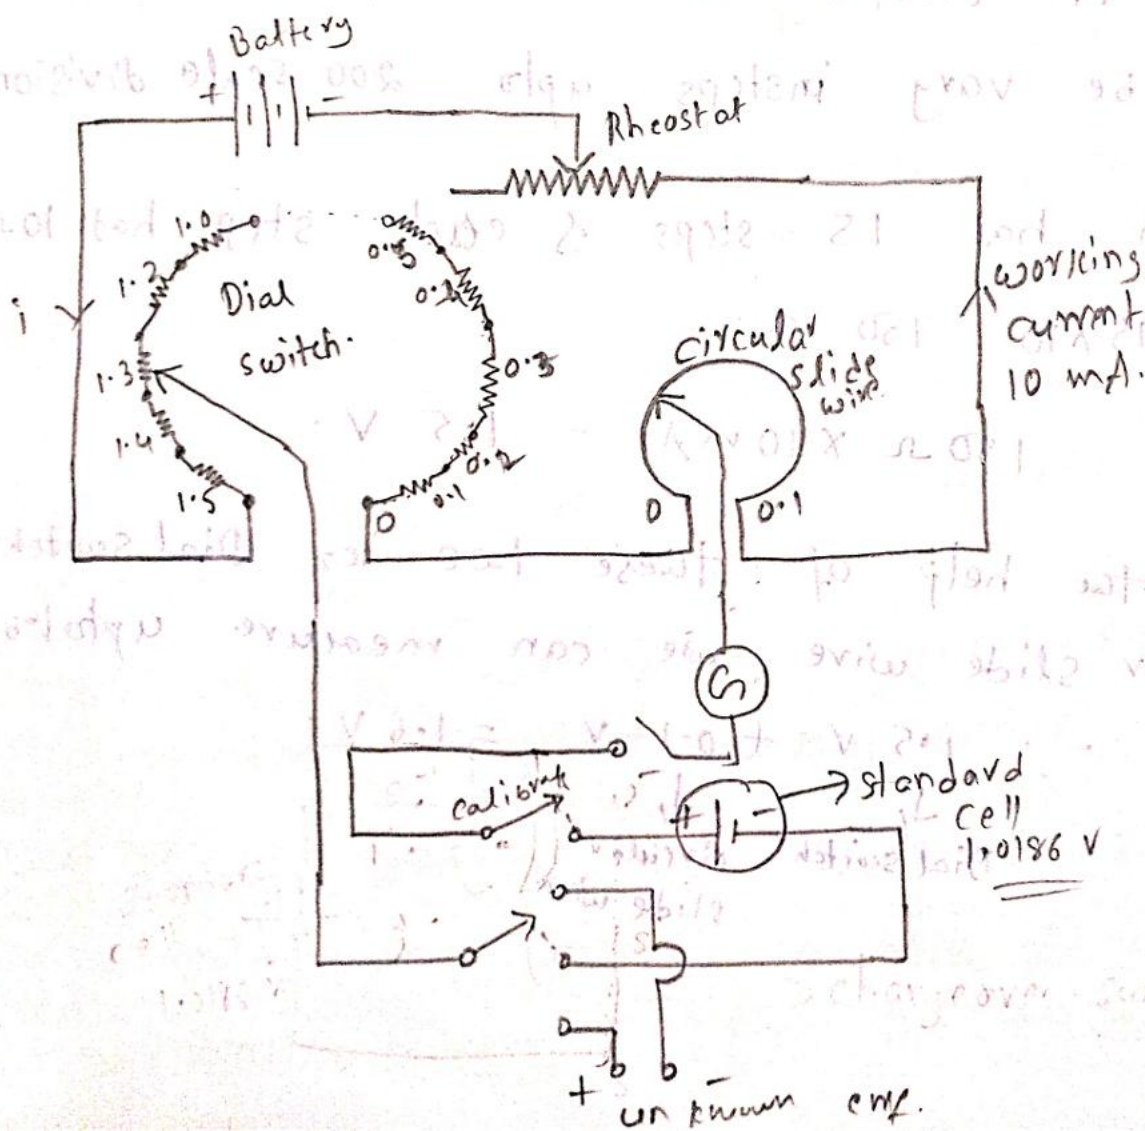 Battery
+
-
Rheostat
1.0
1.2
1.3
1.4
1.5
Dial
switch.
0.3
0.2
0.1
0
i
circular
slide
wire
0
0.1
working
current
10 mA.
G
calibrate
+
-
standard
cell
1.0186 V
+
-
unknown emf.